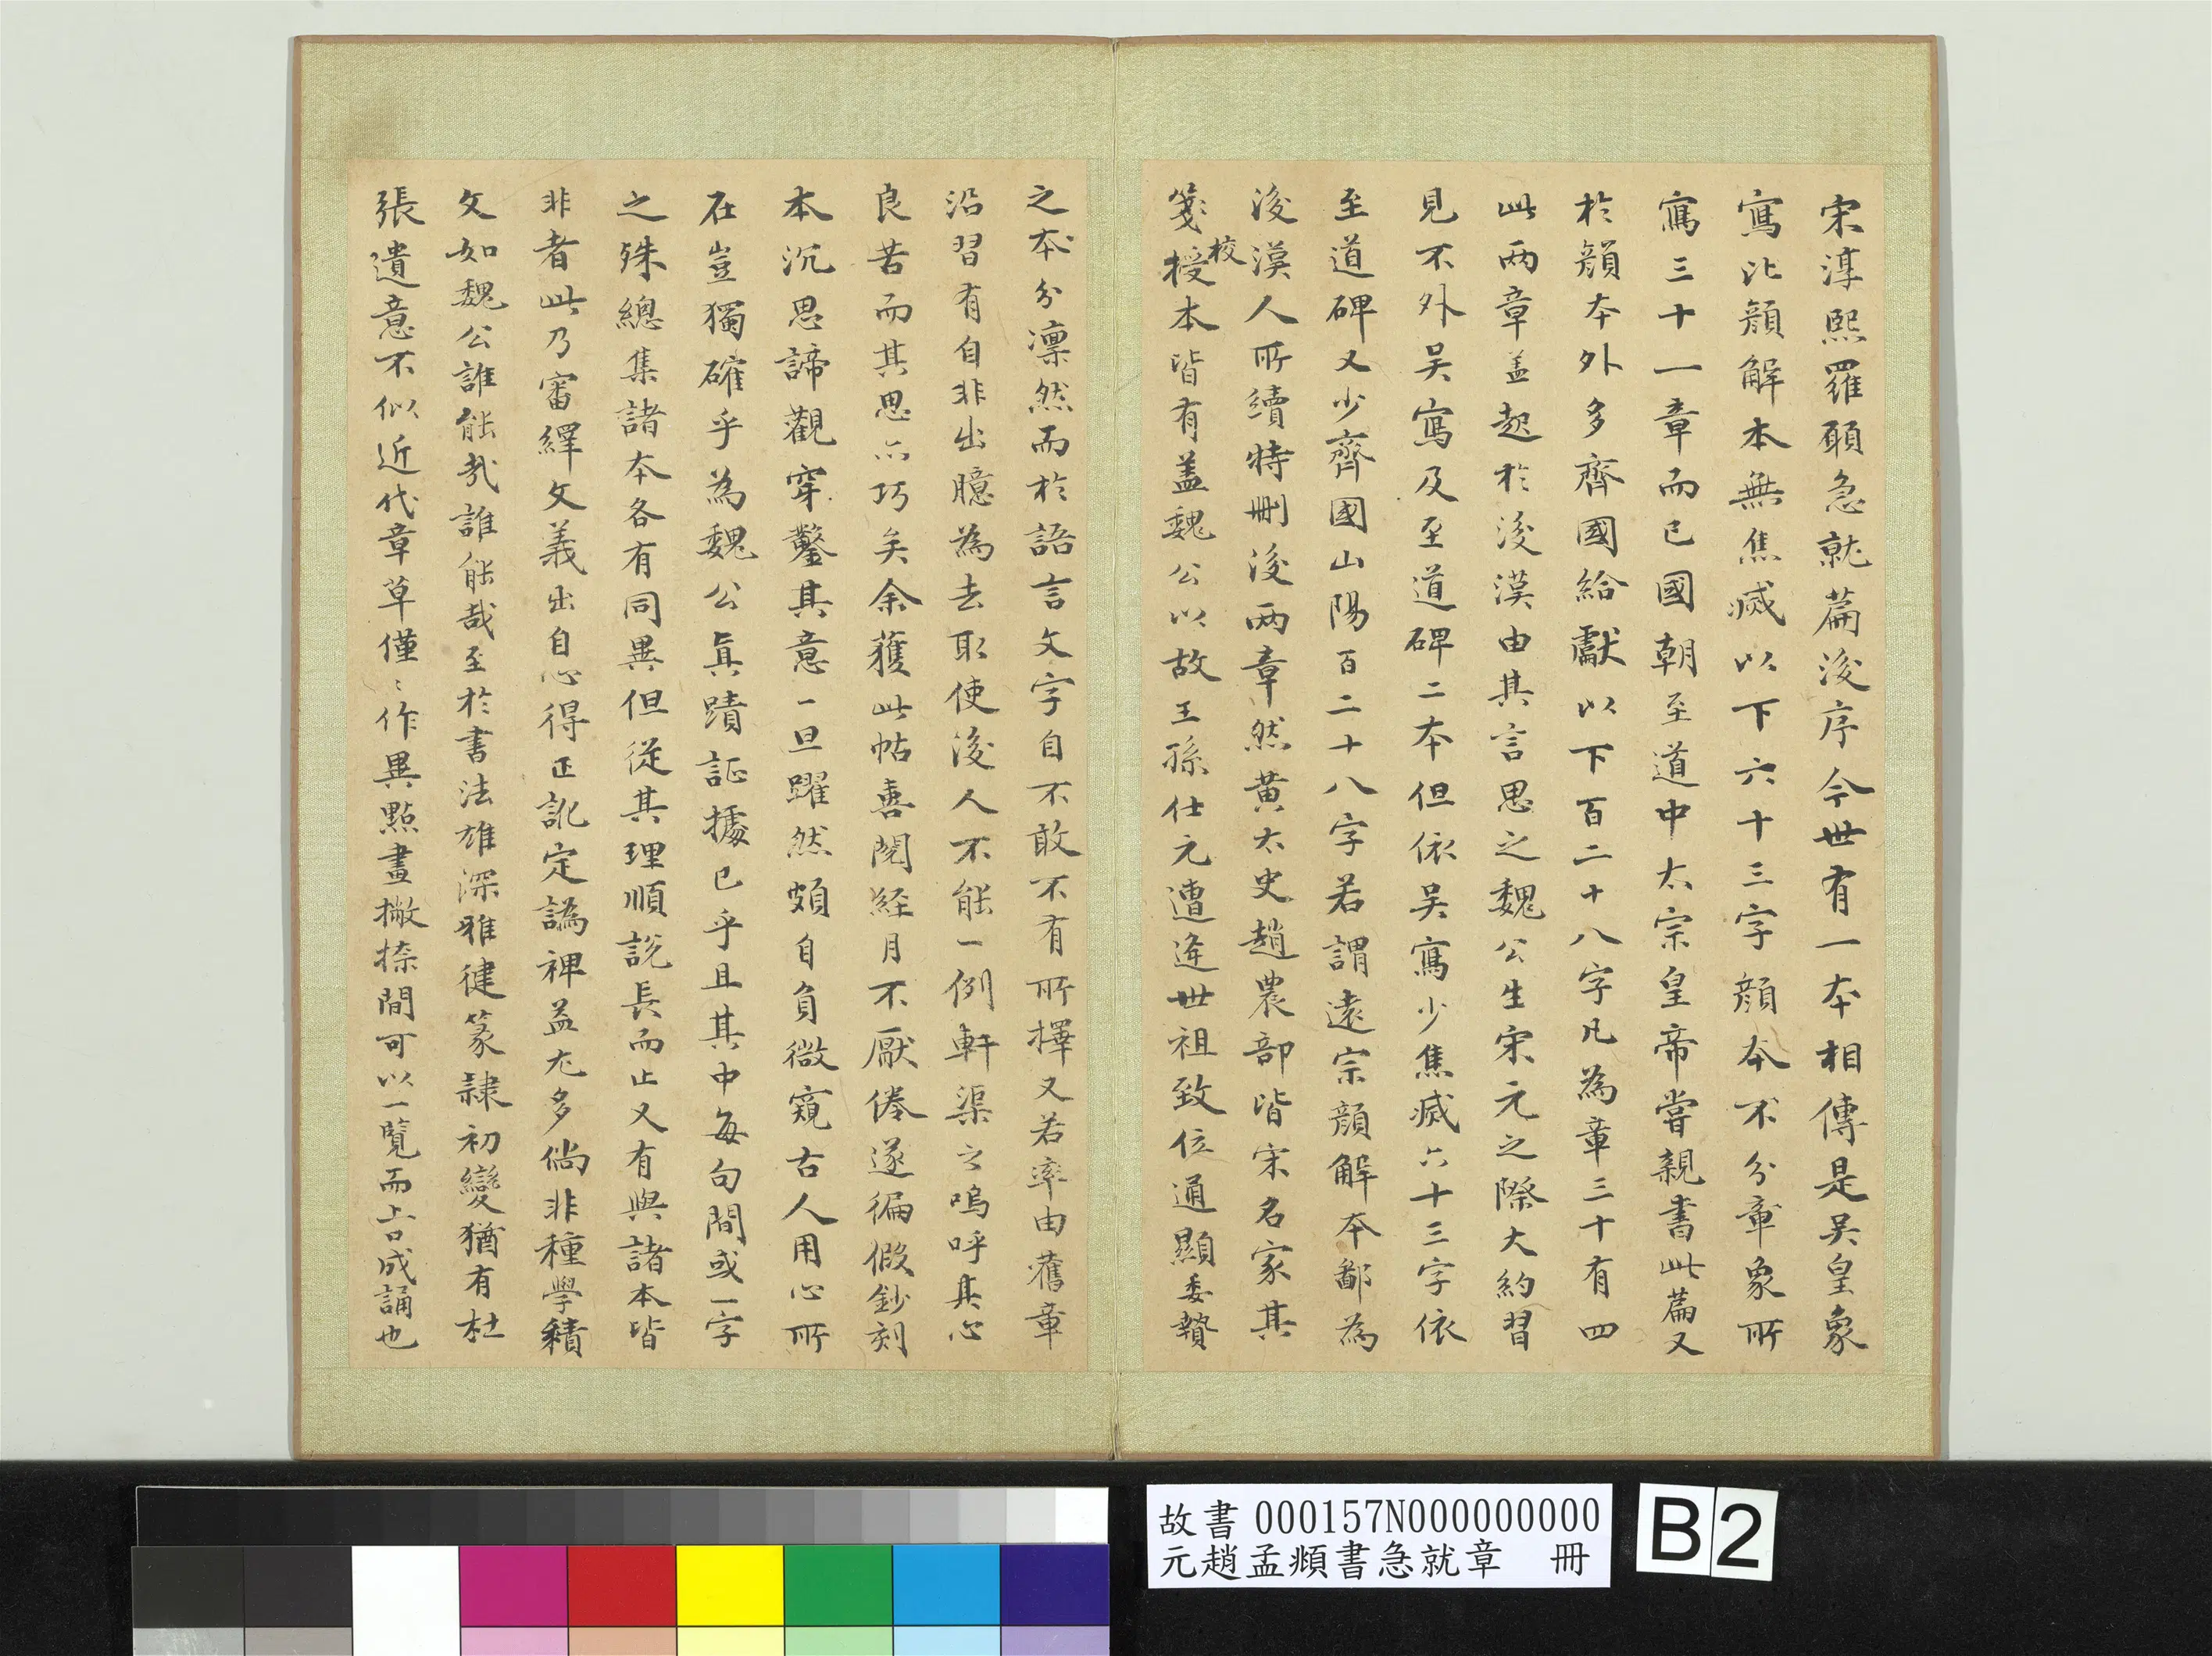 宋淳熙羅願急就篇後序今世有一本相傳是吳皇象
寫比顏解本無焦滅以下六十三字顏本不分章象所
寫三十一章而已國朝至道中太宗皇帝嘗親書此篇又
於顏本外多齊國給獻以下百二十八字凡為章三十有四
此兩章蓋起於後漢由其言思之魏公生宋元之際大約習
見不外吳寫及至道碑二本但依吳寫少焦滅六十三字依
至道碑又少齊國山陽百二十八字若謂遠宗顏解本鄙為
後漢人所續特刪後兩章然黃太史趙農部皆宋名家其
箋授本皆有蓋魏公以故王孫仕元遭逢世祖致位通顯委贄
校
之本分凜然而於語言文字自不敢不有所擇又若率由舊章
沿習有自非出臆為去取使後人不能一例軒渠之嗚呼其心
良苦而其思亦巧矣余獲此帖喜閱經月不厭倦遂徧假鈔刻
本沉思諦觀穿鑿其意一旦躍然頗自負微窺古人用心所
在豈獨確乎為魏公真蹟証據已乎且其中每句間或一字
之殊總集諸本各有同異但從其理順說長而止又有與諸本皆
非者此乃審繹文義出自心得正訛定譌裨益尤多倘非種學績
文如魏公誰能哉誰能哉至於書法雄深雅健篆隸初變猶有杜
張遺意不似近代章草僅〻作異點畫撇捺間可以一覽而占成誦也
故書 000157N000000000
元趙孟頫書急就章 冊
B2